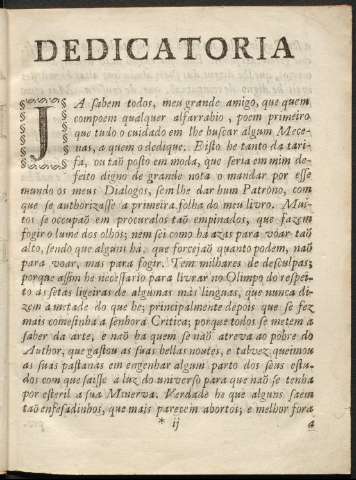 DEDICATORIA
JA ſabem todos, meu grande amigo, que quem
compoem qualquer alfarrabio, poem primeiro
que tudo o cuidado em lhe buſcar algum Mece-
nas, a quem o dedique. E iſto he tanto da tari-
fa, ou taõ poſto em moda, que ſeria em mim de-
feito digno de grande nota o mandar por eſſe
mundo os meus Dialogos, ſem lhe dar hum Patrono, com
que ſe authorizaſſe a primeira folha do meu livro. Mui-
tos ſe occupaõ em procuralos taõ empinados, que fazem
fogir o lume dos olhos; nem ſei como ha azas para voar taõ
alto, ſendo que alguns ha, que forcejaõ quanto podem, naõ
para voar, mas para fogir. Tem milhares de deſculpas;
porque aſſim he neceſſario para livrar no Olimpo do reſpei-
to as ſetas ligeiras de algumas más linguas, que nunca di-
zem a metade do que he; principalmente depois que ſe fez
mais comeſinha a ſenhora Critica; porque todos ſe metem a
ſaber da arte, e naõ ha quem ſe naõ atreva ao pobre do
Author, que gaſtou as ſuas bellas noutes, e talvez queimou
as ſuas paſtanas em engenhar algum parto dos ſeus eſtu-
dos com que ſaiſſe a luz do univerſo para que naõ ſe tenha
por eſteril a ſua Minerva. Verdade he que alguns ſaem
taõ enfeſadinhos, que mais parecem abortos; e melhor fora
* ij
a